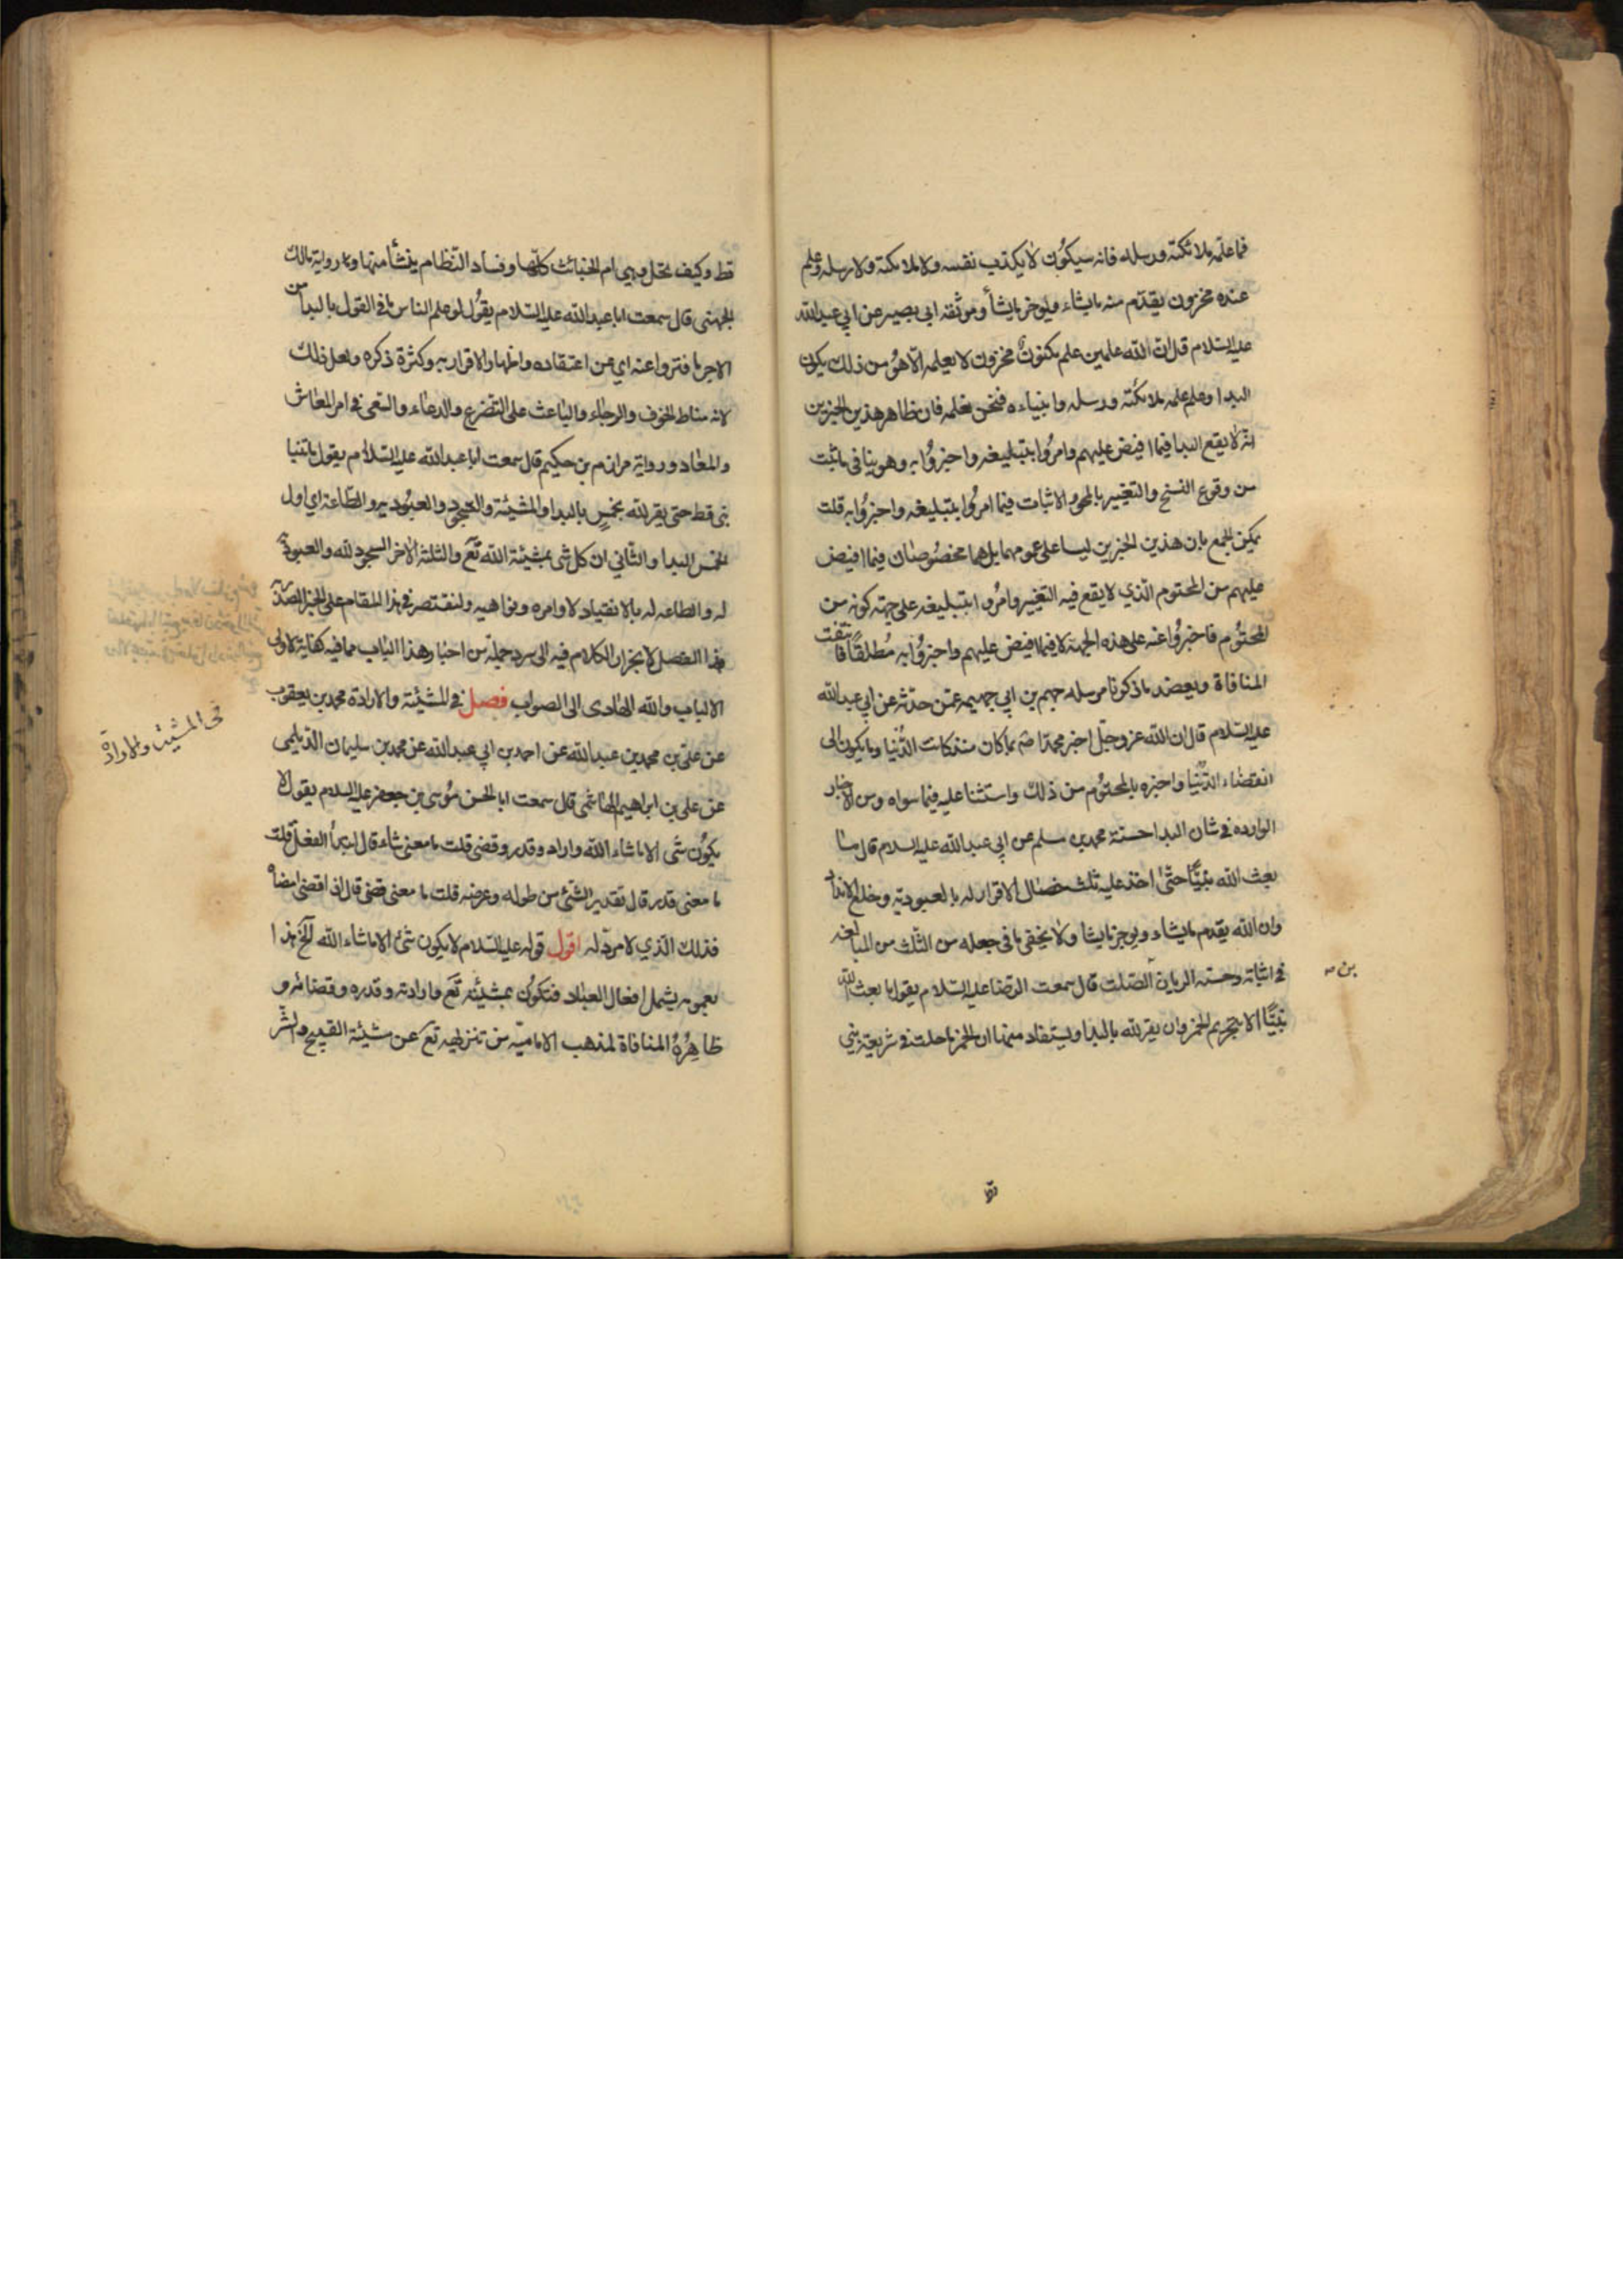 فما علّمه ملائكته ورسله فانه سيكون لا يكذب نفسه ولا ملائكته ولا رسله وعلم
عنده مخزون يقدّم منه ما يشاء ويوخر ما يشأ وموثقه ابى بصير عن ابي عبدالله
عليه السلام قال ان الله علمين علم مكنون مخزون لا يعلمه الّا هو من ذلك يكون
البدا وعلم علمه ملائكته ورسله وانبياءه فنحن نعلمه فان ظاهر هذين الخبرين
انه لا يقع البدا فيما افيض عليهم وامروا بتبليغه واخبروا به وهو ينافى ما ثبت
من وقوع النسخ والتغيير بالمحو والاثبات فيما امروا بتبليغه واخبروا به قلت
يمكن الجمع بان هذين الخبرين ليسا على عمومهما بل هما مخصوصان فيما افيض
عليهم من المحتوم الّذي لا يقع فيه التغيير وامروا بتبليغه على جهة كونه من
المحتوم فاخبروا عنه على هذه الجهة لا فيما افيض عليهم واخبروا به مُطلقاً فانتفت
المنافاة ويعضد ما ذكرنا مرسله جهم بن ابي جهيمه عمّن حدّثه عن ابي عبدالله
عليه السلام قال ان الله عز وجل اخبر محمدا صم بما كان منذ كانت الدُنيا وما يكون الى
انقضاء الدّنيا واخبره بالمحتوم من ذلك واستثنا عليه فيما سواه ومن الاخبار
الوارده في شان البدا حسنة محمد بن مسلم عن ابي عبدالله عليه السلام قال ما
بعث الله نبيًّا حتّى اخذ عليه ثلث خصال الاقرار له بالعبوديّة وخلع الانداد
وان الله يقدم ما يشاء ويوخر ما يشا ولا يخفى ما في جعله من الثلث من المبالغه
في اثباته وحسنه الريان الصّلت قال سمعت الرضا عليه السّلام يقول ما بعث الله
بن صح
نبيًّا الا بتحريم الخمر وان يقر لله بالبدا ويستفاد منها ان الخمر ما حلت في شريعة نبي
قط
قط وكيف تحل وهي ام الخبائث كلّها وفساد النّظام ينشأ منها وما رواية مالك
الجهنى قال سمعت ابا عبدالله عليه السّلام يقول لو علم الناس ما في القول بالبدأ من
الاجر ما فتروا عنه اي عن اعتقاده واظهار الاقرار به وكثرة ذكره ولعل ذلك
لانه مناط الخوف والرجاء والباعث على التضرع والدعاء والسعى في امر المعاش
والمعاد ورواية مرازم بن حكيم قال سمعت ابا عبدالله عليه السّلام يقول ما تنبا
نبى قط حتى يقر لله بخمسٍ بالبدا والمشيئة والسجود والعبوديه والطاعة اي اول
الخمس البدا والثّاني ان كل شى بمشيئة الله تع والثلثه الاخر السجود لله والعبودية
له والطاعه له بالانقياد لاوامره ونواهيه ولنقتصر في هذا المقام على
هذا الفصل لانجرار الكلام فيه الى سرد جملة من اخبار هذا الباب مما فيه كفاية لاولى
الالباب والله الهادى الى الصواب فصل في المشيئة والارادة محمد بن يعقوب
في المشيئة والارادة
عن على بن محمد بن عبدالله عن احمد بن ابي عبدالله عن محمد بن سليمان الديلمى
عن على بن ابراهيم الهاشمى قال سمعت ابا الحسن موسى بن جعفر عليه السلام يقول لا
يكون شى الا ما شاء الله واراد وقدر وقضى قلت ما معنى شاء قال ابتدأ الفعل قلت
ما معنى قدر قال تقدير الشئ من طوله وعرضه قلت ما معنى قضى قال اذا قضى امضاه
فذلك الّذي لا مردّ له اقول قوله عليه السلام لا يكون شئ الا ما شاء الله الخ هذا
بعمومه يشمل افعال العباد فتكون بمشيئته تع وارادته وقدره وقضائه و
ظاهِرُهُ المنافاة لمذهب الاماميّه من تنزيهه تع عن مشيئة القبيح والشر